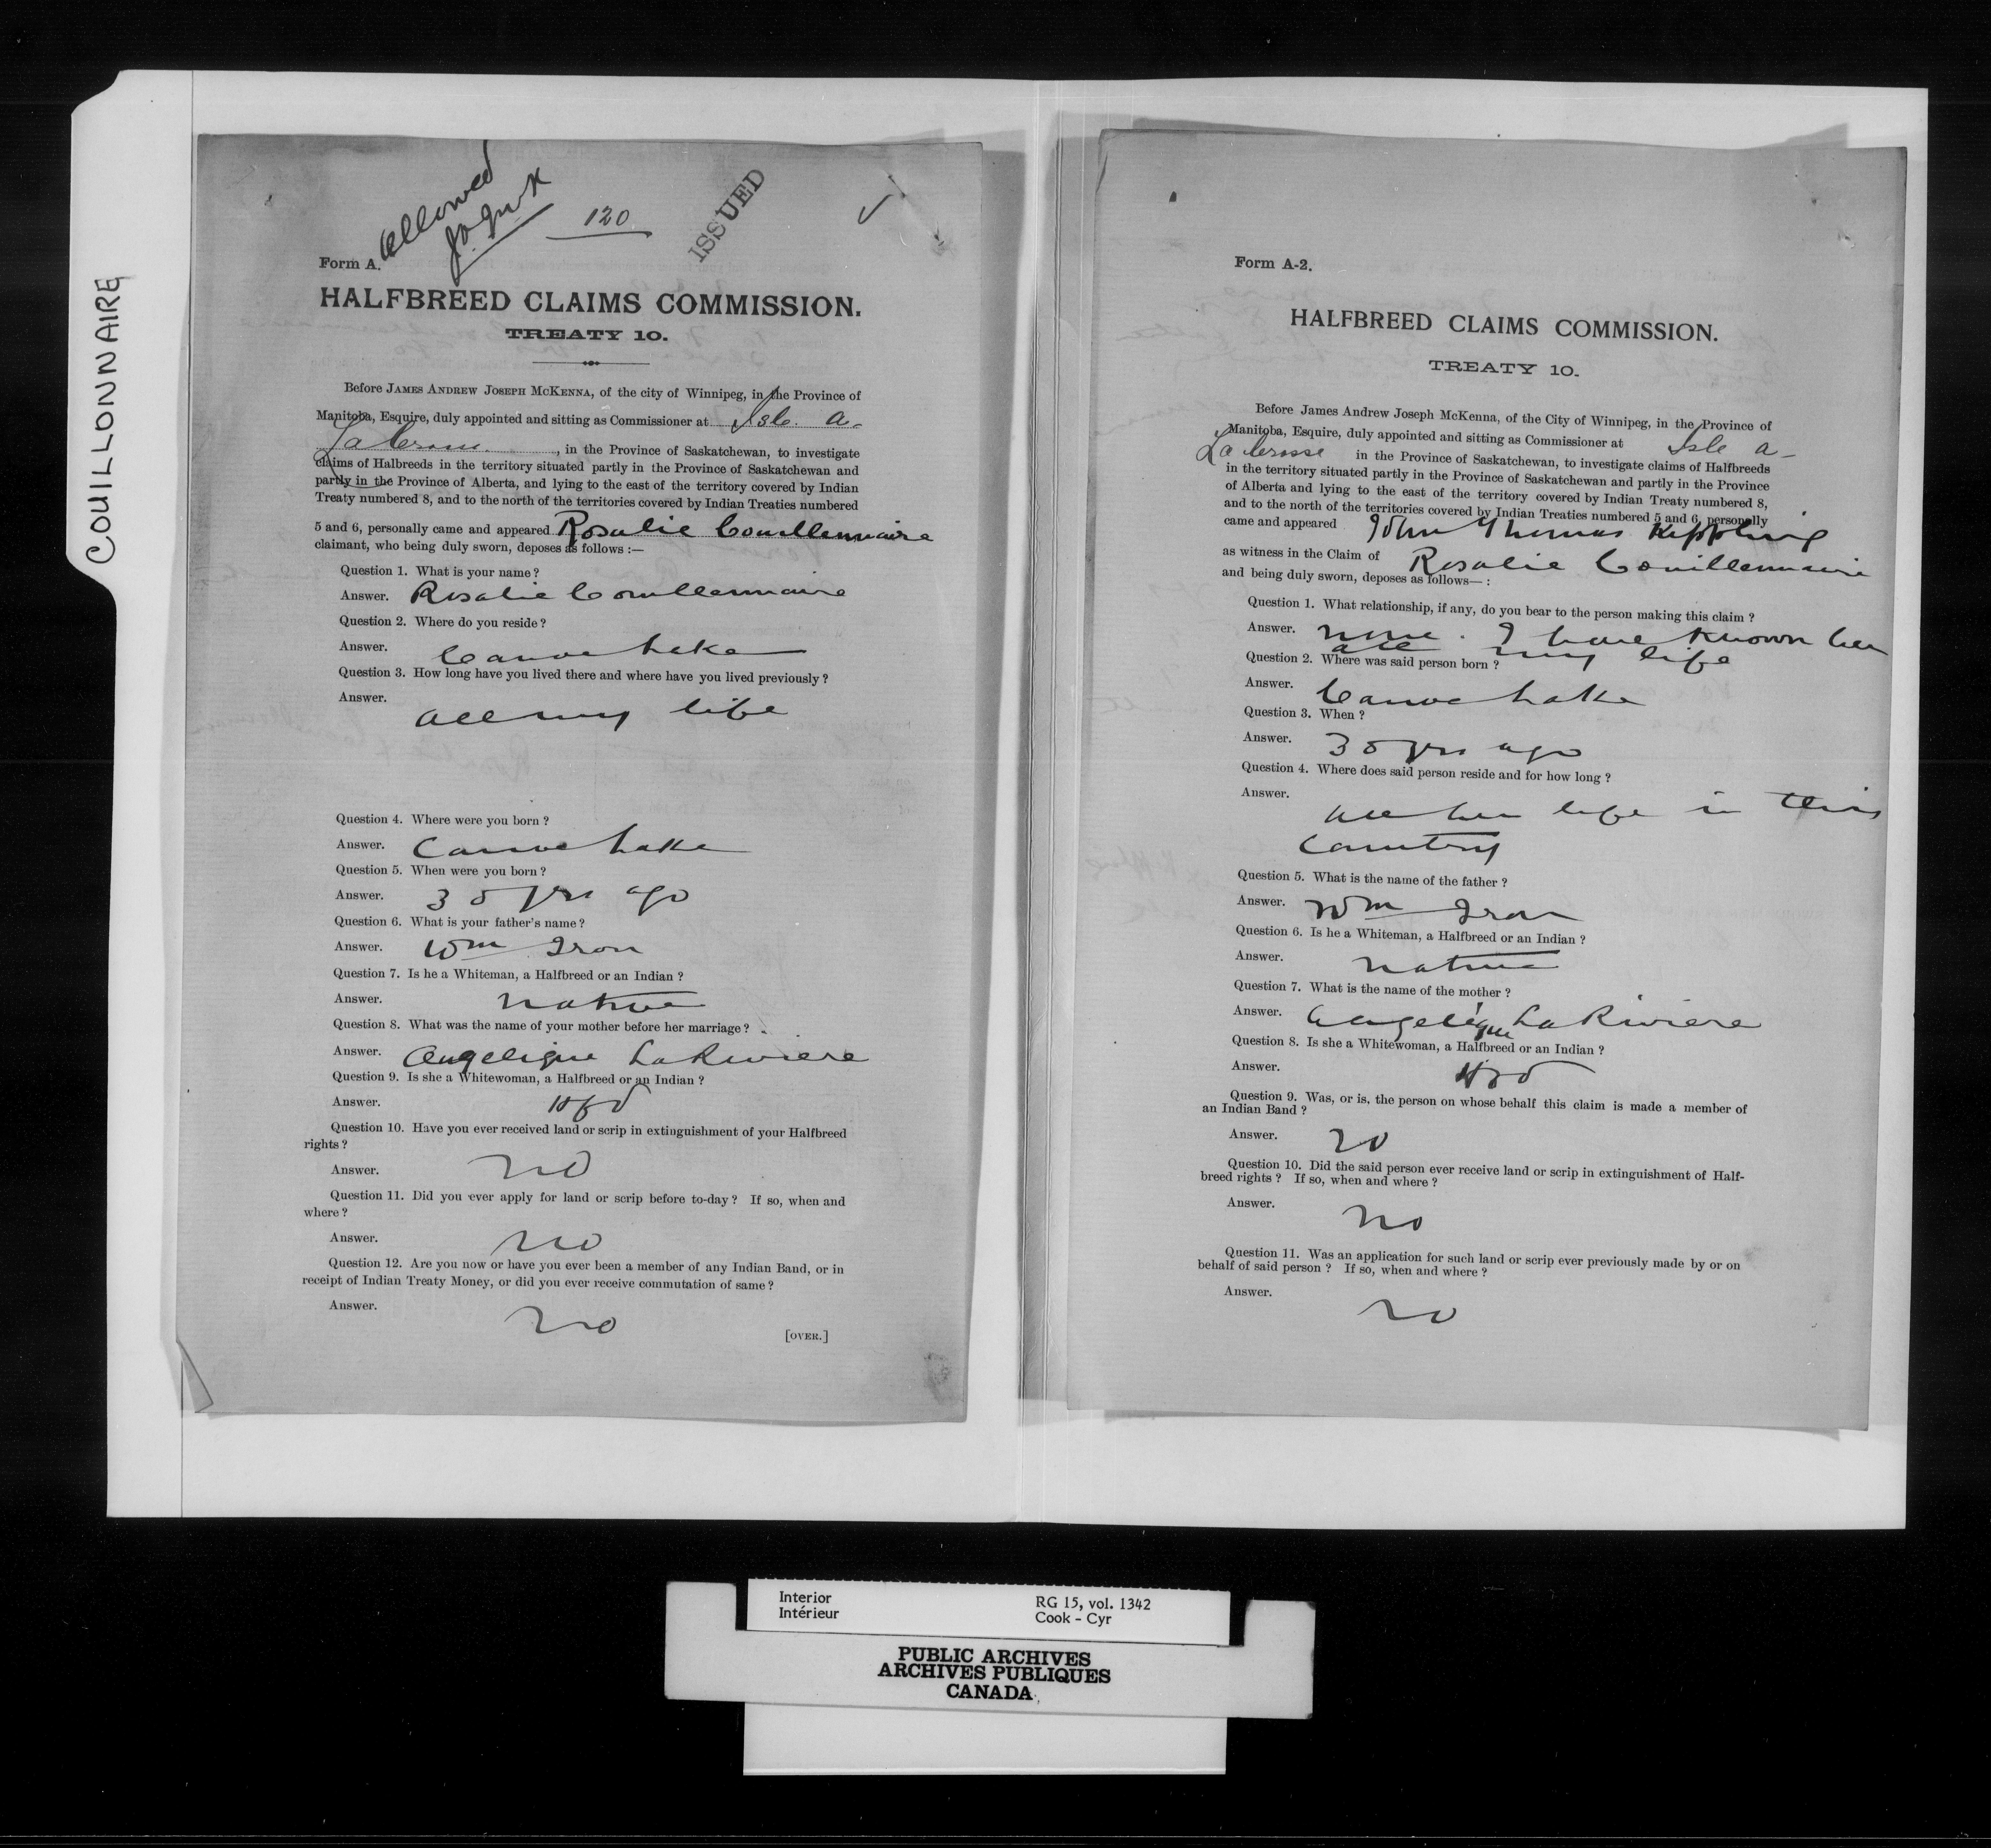 COUILLONNAIRE
Allowed
J.A.J. McK
120
ISSUED
Form A.
HALFBREED CLAIMS COMMISSION.
TREATY 10.
Before JAMES ANDREW JOSEPH MCKENNA, of the city of Winnipeg, in the Province of
Manitoba, Esquire, duly appointed and sitting as Commissioner at Isle a-
La Crosse, in the Province of Saskatchewan, to investigate
claims of Halbreeds in the territory situated partly in the Province of Saskatchewan and
partly in the Province of Alberta, and lying to the east of the territory covered by Indian
Treaty numbered 8, and to the north of the territories covered by Indian Treaties numbered
5 and 6, personally came and appeared Rosalie Couillennaire
claimant, who being duly sworn, deposes as follows :—
Question 1. What is your name ?
Answer. Rosalie Couillennaire
Question 2. Where do you reside ?
Answer. Canoe Lake
Question 3. How long have you lived there and where have you lived previously ?
Answer. all my life
Question 4. Where were you born ?
Answer. Canoe Lake
Question 5. When were you born ?
Answer. 35 yrs ago
Question 6. What is your father's name ?
Answer. Wm Iron
Question 7. Is he a Whiteman, a Halfbreed or an Indian ?
Answer. native
Question 8. What was the name of your mother before her marriage ?
Answer. Angelique LaRiviere
Question 9. Is she a Whitewoman, a Halfbreed or an Indian ?
Answer. Hfd
Question 10. Have you ever received land or scrip in extinguishment of your Halfbreed
rights ?
Answer. no
Question 11. Did you ever apply for land or scrip before to-day ? If so, when and
where ?
Answer. no
Question 12. Are you now or have you ever been a member of any Indian Band, or in
receipt of Indian Treaty Money, or did you ever receive commutation of same ?
Answer. no
[OVER.]
Form A-2.
HALFBREED CLAIMS COMMISSION.
TREATY 10.
Before James Andrew Joseph McKenna, of the City of Winnipeg, in the Province of
Manitoba, Esquire, duly appointed and sitting as Commissioner at Isle a-
La Crosse in the Province of Saskatchewan, to investigate claims of Halfbreeds
in the territory situated partly in the Province of Saskatchewan and partly in the Province
of Alberta and lying to the east of the territory covered by Indian Treaty numbered 8,
and to the north of the territories covered by Indian Treaties numbered 5 and 6, personally
came and appeared John Thomas Kippling
as witness in the Claim of Rosalie Couillennaire
and being duly sworn, deposes as follows— :
Question 1. What relationship, if any, do you bear to the person making this claim ?
Answer. none. I have known her
all my life
Question 2. Where was said person born ?
Answer. Canoe Lake
Question 3. When ?
Answer. 35 yrs ago
Question 4. Where does said person reside and for how long ?
Answer. all her life in this
Country
Question 5. What is the name of the father ?
Answer. Wm Iron
Question 6. Is he a Whiteman, a Halfbreed or an Indian ?
Answer. native
Question 7. What is the name of the mother ?
Answer. Angelique LaRiviere
Question 8. Is she a Whitewoman, a Halfbreed or an Indian ?
Answer.
Question 9. Was, or is, the person on whose behalf this claim is made a member of
an Indian Band ?
Answer. no
Question 10. Did the said person ever receive land or scrip in extinguishment of Half-
breed rights ? If so, when and where ?
Answer. no
Question 11. Was an application for such land or scrip ever previously made by or on
behalf of said person ? If so, when and where ?
Answer. no
Interior
Intérieur
RG 15, vol. 1342
Cook - Cyr
PUBLIC ARCHIVES
ARCHIVES PUBLIQUES
CANADA